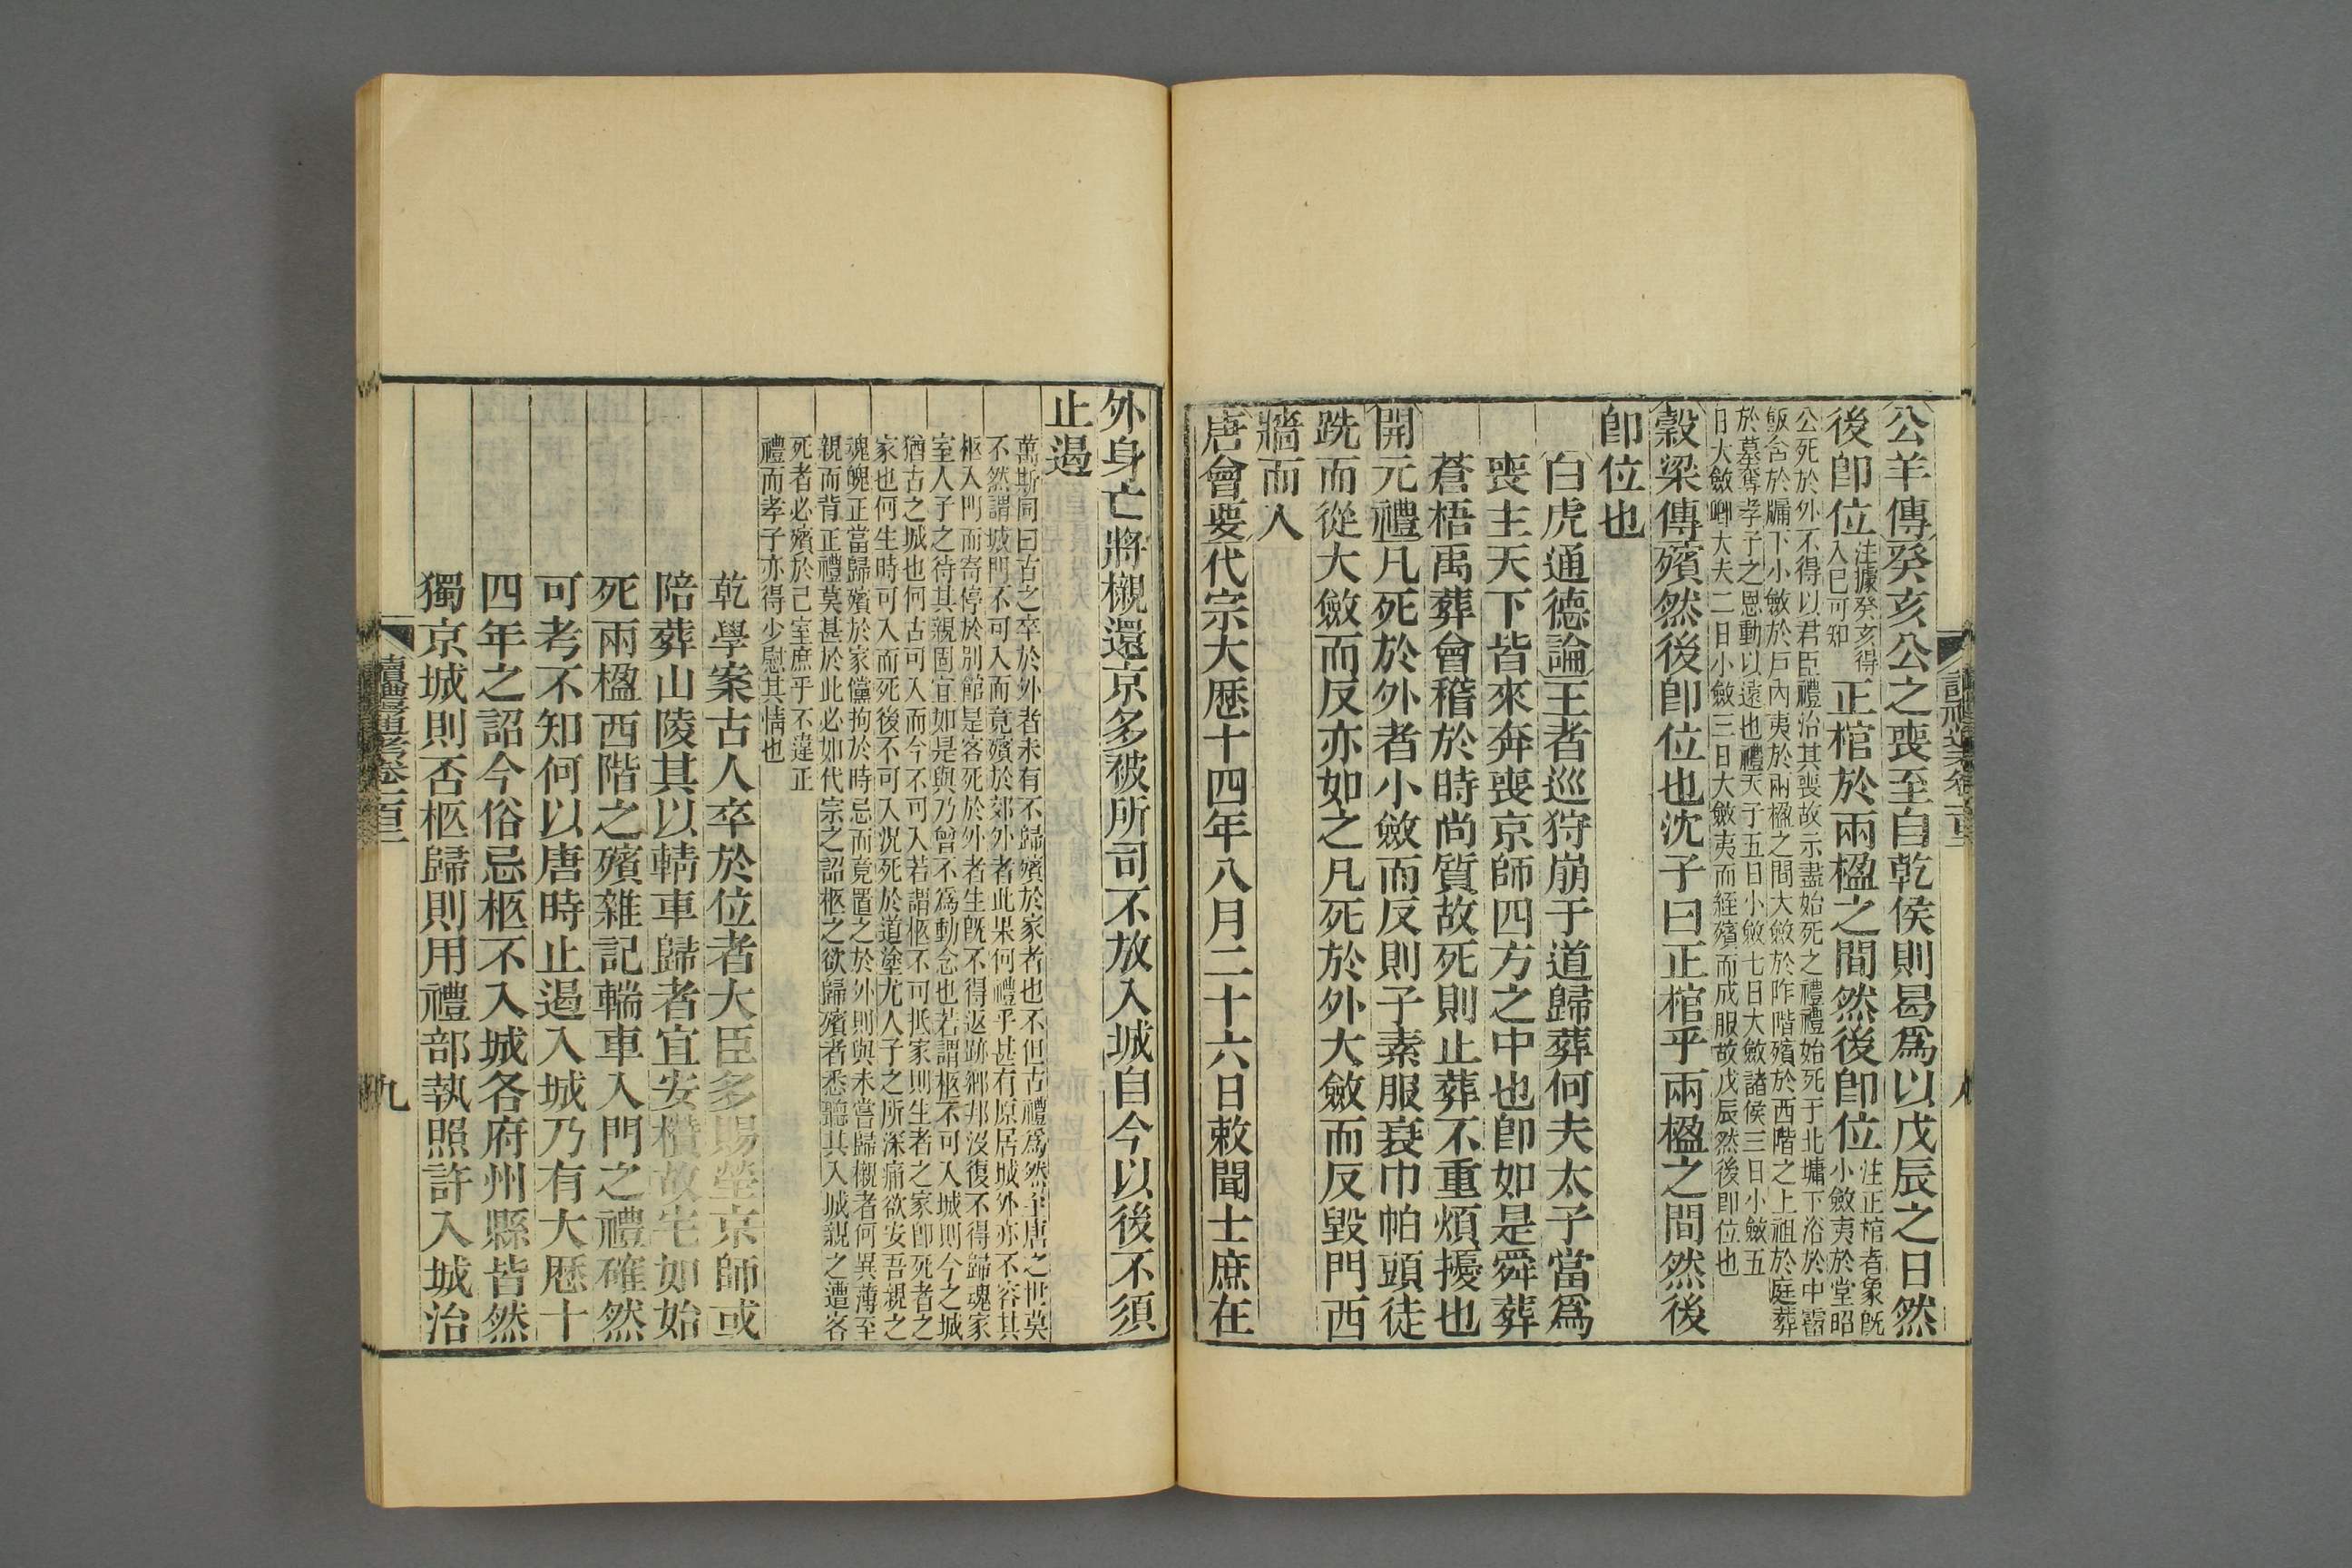 公羊傳癸亥公之喪至自乾侯則曷爲以戊辰之日然
後卽位注據癸亥得入已可知正棺於兩楹之間然後卽位注正棺者象旣小斂夷於堂昭
公死於外不得以君臣禮治其喪故示盡始死之禮禮始死于北墉下浴於中霤
飯含於牖下小斂於戶內夷於兩楹之間大斂於阼階殯於西階之上祖於庭葬
於墓奪孝子之恩動以遠也禮天子五日小斂七日大斂諸侯三日小斂五
日大斂卿大夫二日小斂三日大斂夷而絰殯而成服故戊辰然後卽位也
穀梁傳殯然後卽位也沈子曰正棺乎兩楹之間然後
卽位也
白虎通德論王者巡狩崩于道歸葬何夫太子當爲
喪主天下皆來奔喪京師四方之中也卽如是舜葬
蒼梧禹葬會稽於時尚質故死則止葬不重煩擾也
開元禮凡死於外者小斂而反則子素服衰巾帕頭徒
跣而從大斂而反亦如之凡死於外大斂而反毀門西
牆而入
唐會要代宗大歷十四年八月二十六日敕聞士庶在
外身亡將櫬還京多被所司不放入城自今以後不須
止遏
萬斯同曰古之卒於外者未有不歸殯於家者也不但古禮爲然至唐之世莫
不然謂城門不可入而竟殯於郊外者此果何禮乎甚有原居城外亦不容其
柩入門而寄停於別館是客死於外者生旣不得返跡鄉邦沒復不得歸魂家
室人子之待其親固宜如是與乃曾不爲動念也若謂柩不可入城則今之城
猶古之城也何古可入而今不可入若謂柩不可抵家則生者之家卽死者之
家也何生時可入而死後不可入況死於道塗尤人子之所深痛欲安吾親之
魂魄正當歸殯於家儻拘於時忌而竟置之於外則與未嘗歸櫬者何異薄至
親而背正禮莫甚於此必如代宗之詔柩之欲歸殯者悉聽其入城親之遭客
死者必殯於己室庶乎不違正
禮而孝子亦得少慰其情也
乾學案古人卒於位者大臣多賜塋京師或
陪葬山陵其以輤車歸者宜安櫕故宅如始
死兩楹西階之殯雜記輲車入門之禮確然
可考不知何以唐時止遏入城乃有大歷十
四年之詔今俗忌柩不入城各府州縣皆然
獨京城則否柩歸則用禮部執照許入城治
讀禮通考卷一百三
九